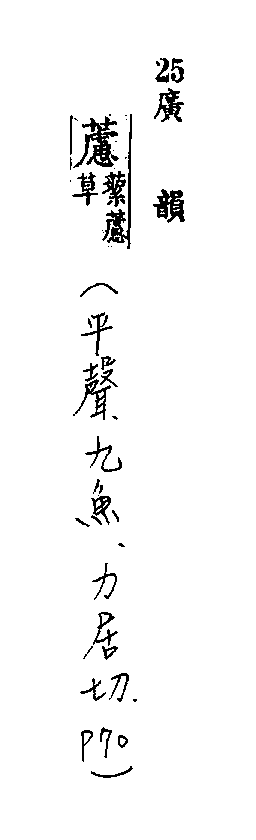 25 廣韻
藘 蕠藘草（平聲、九魚、力居切. P70）